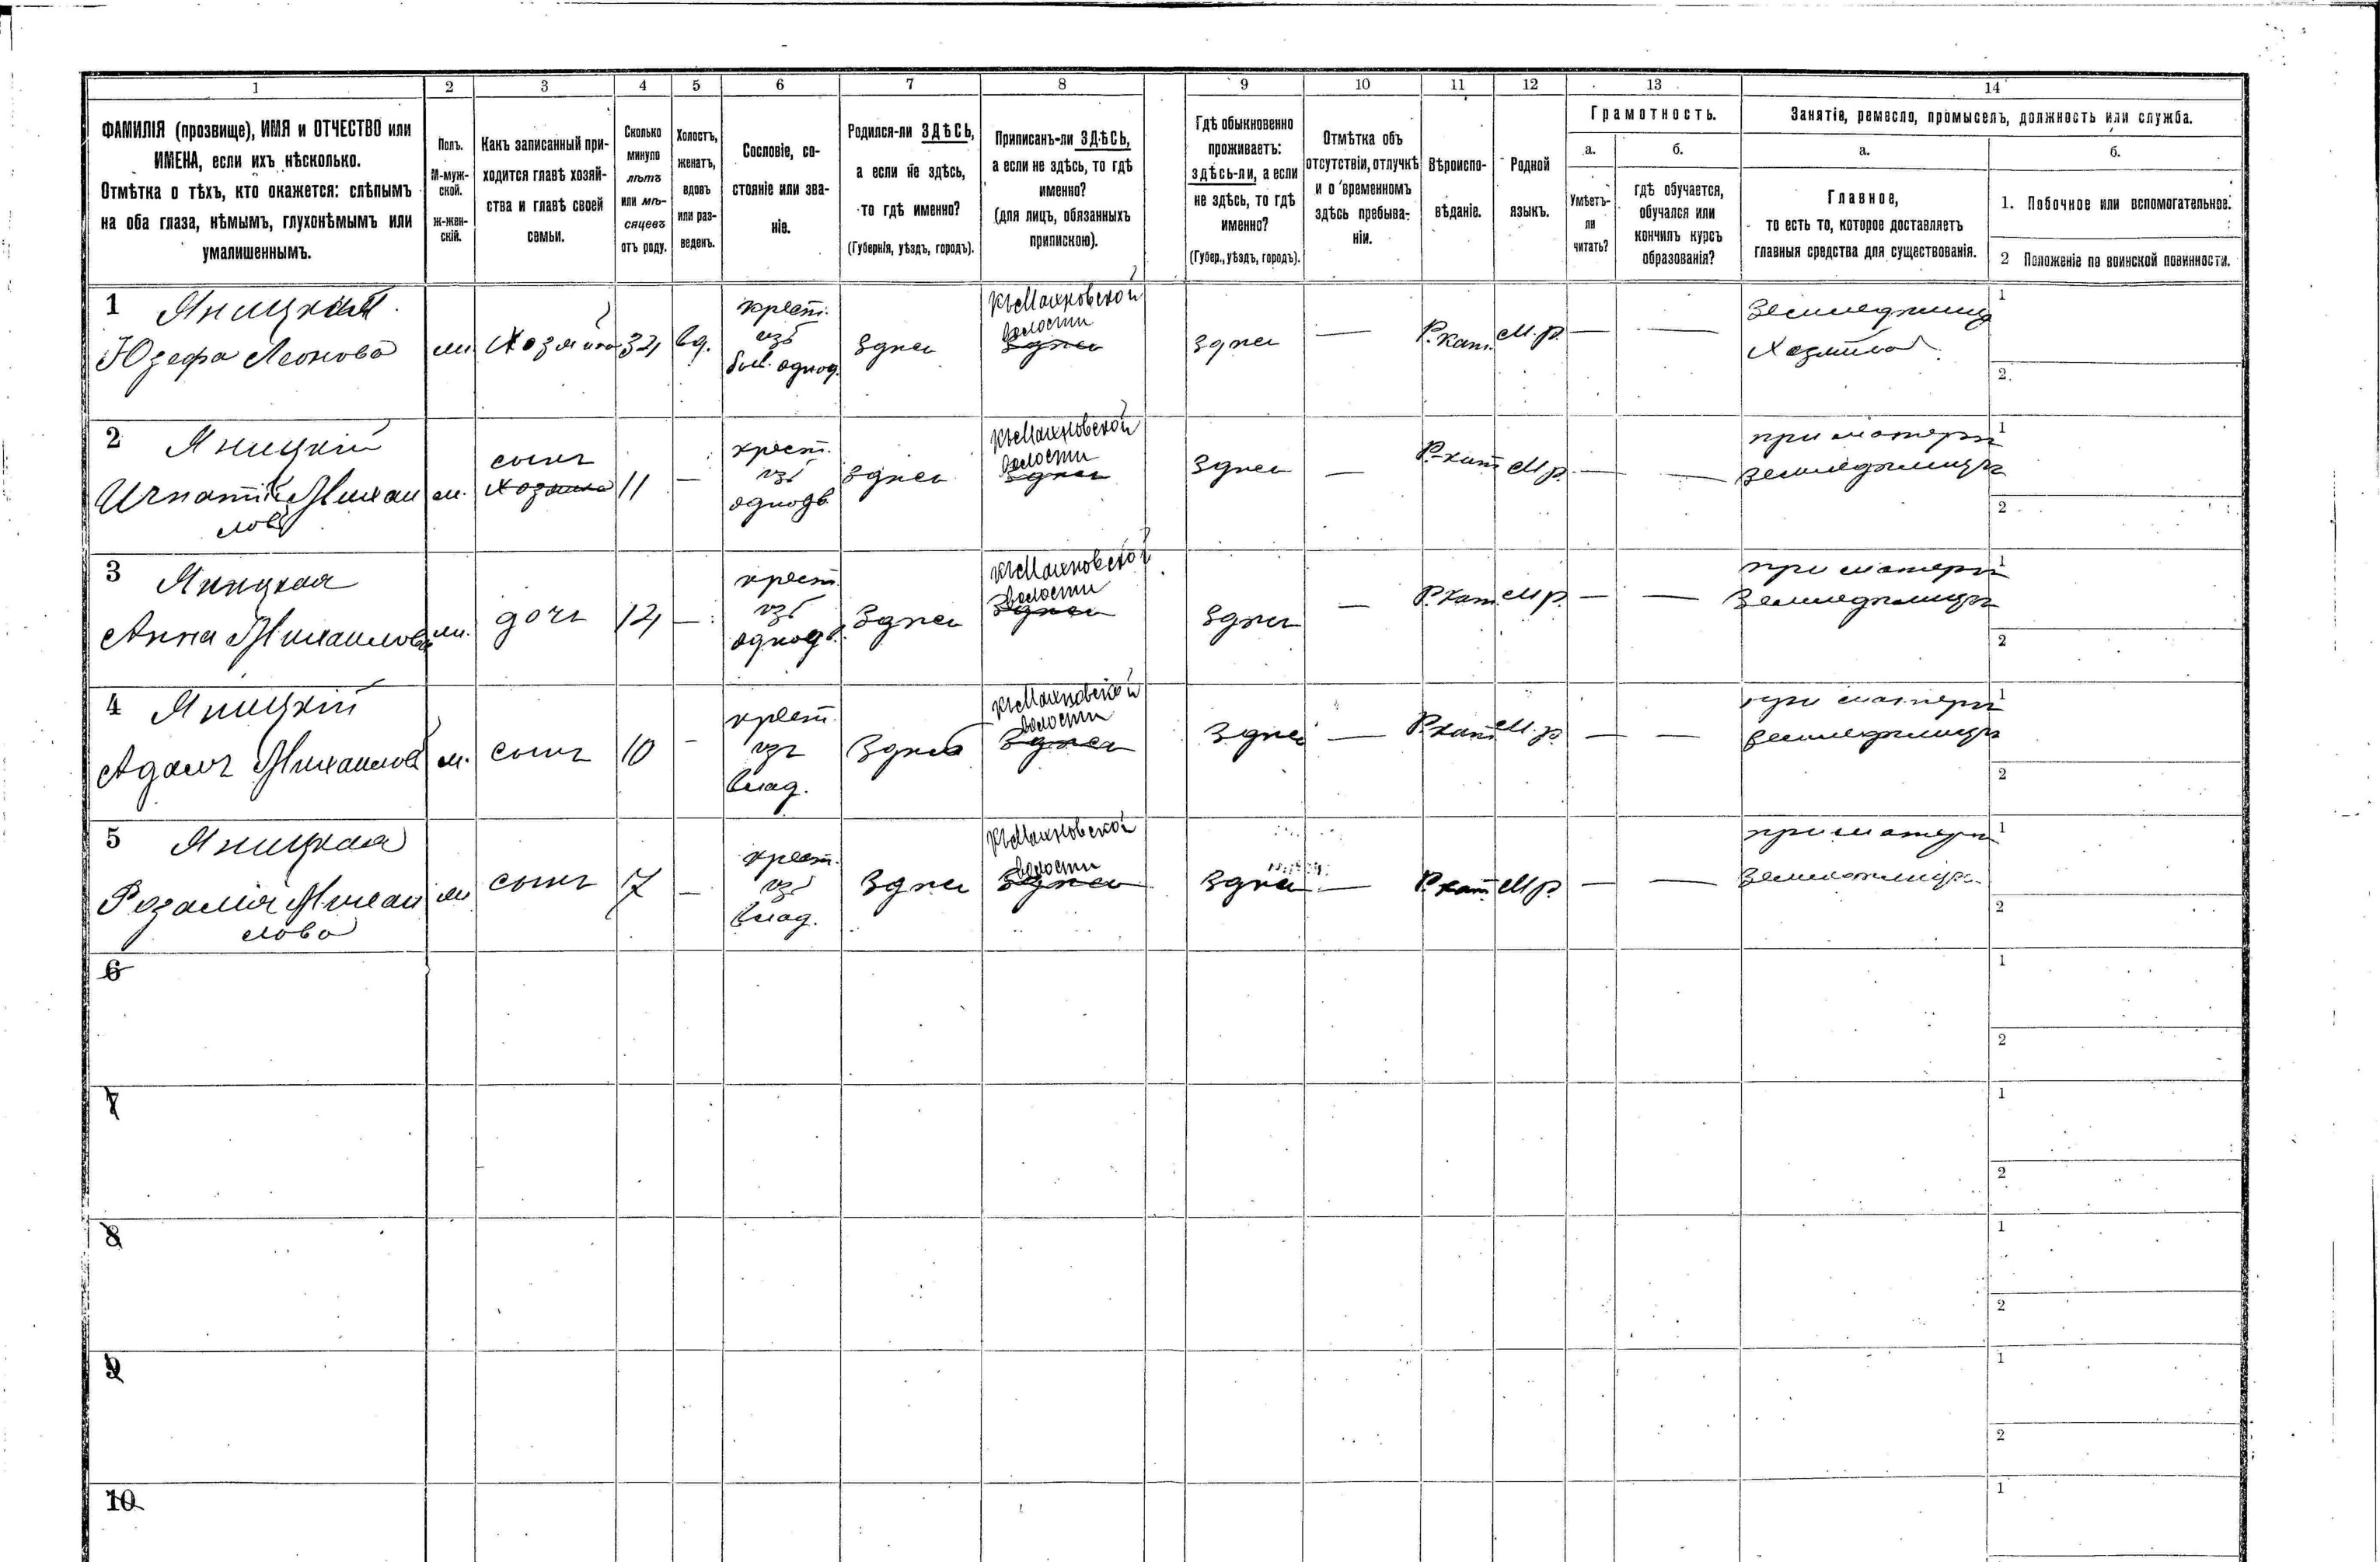 1 2 3 4 5 6 7 8 9 10 11 12 13 14
ФАМИЛІЯ (прозвище), ИМЯ и ОТЧЕСТВО или
ИМЕНА, если ихъ нѣсколько.
Отмѣтка о тѣхъ, кто окажется: слѣпымъ
на оба глаза, нѣмымъ, глухонѣмымъ или
умалишеннымъ.
Полъ.
М-муж-
ской.
Ж-жен-
скій.
Какъ записанный при-
ходится главѣ хозяй-
ства и главѣ своей
семьи.
Сколько
минуло
лѣтъ
или мѣ-
сяцевъ
отъ роду.
Холостъ,
женатъ,
вдовъ
или раз-
веденъ.
Сословіе, со-
стояніе или зва-
ніе.
Родился-ли ЗДѢСЬ,
а если не здѣсь,
то гдѣ именно?
(Губернія, уѣздъ, городъ).
Приписанъ-ли ЗДѢСЬ,
а если не здѣсь, то гдѣ
именно?
(для лицъ, обязанныхъ
припискою).
Гдѣ обыкновенно
проживаетъ:
здѣсь-ли, а если
не здѣсь, то гдѣ
именно?
(Губер., уѣздъ, городъ).
Отмѣтка объ
отсутствіи, отлучкѣ
и о временномъ
здѣсь пребыва-
ніи.
Вѣроиспо-
вѣданіе.
Родной
языкъ.
Грамотность.
а.
Умѣетъ-
ли
читать?
б.
гдѣ обучается,
обучался или
кончилъ курсъ
образованія?
Занятіе, ремесло, промыселъ, должность или служба.
а.
Главное,
то есть то, которое доставляетъ
главныя средства для существованія.
б.
1. Побочное или вспомогательное.
2 Положеніе по воинской повинности.
1 Яницкая
Юзефа Леонова
м.
Хозяйка
34
вд.
крест.
изъ
быв. однод.
Здѣсь
къ Махновской
волости
Здѣсь
Здѣсь
—
Р.кат.
М.р.
—
—
Земледѣлица
Хозяйка
1
2.
2 Яницкій
Игнатій Михаи
ловъ
м.
сынъ
Хозяйка
11
—
крест.
изъ
однодв.
Здѣсь
къ Махновской
волости
Здѣсь
Здѣсь
—
Р-кат
М.р.
—
—
при матери
земледѣлицѣ
1
2
3 Яницкая
Анна Михаилова
м.
дочь
14
—
крест.
изъ
однодв.
Здѣсь
къ Махновской
волости
Здѣсь
Здѣсь
—
Р.кат.
М.р.
—
—
при матери
Земледѣлицѣ
1
2
4 Яницкій
Адамъ Михаиловъ
м.
сынъ
10
-
крест.
изъ
влад.
Здѣсь
къ Махновской
волости
Здѣсь
Здѣсь
—
Р.кат
М.р.
—
—
при матери
земледѣлицѣ
1
2
5 Яницкая
Розалія Михаи
лова
м
сынъ
7
—
крест.
изъ
влад.
Здѣсь
къ Махновской
волости
Здѣсь
Здѣсь
—
Р.кат
М.р.
—
—
при матери
Земледѣлицѣ
1
2
6
1
2
7
1
2
8
1
2
9
1
2
10
1